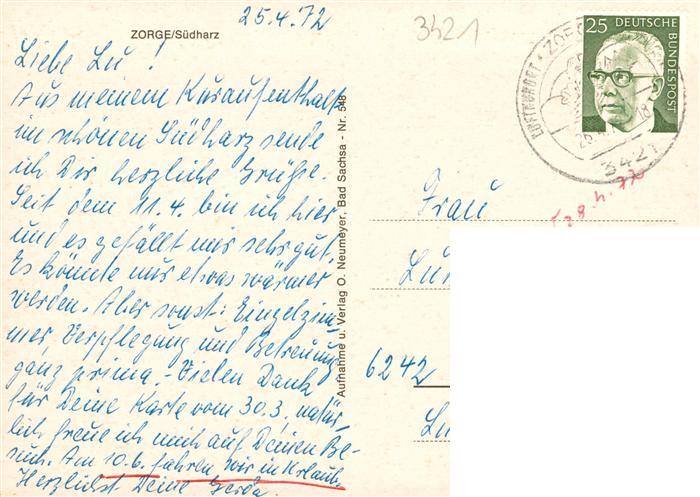 25.4.72
ZORGE/Südharz
Liebe Lu!
Aus meinem Kuraufenthalt
im schönen Südharz sende
ich Dir herzliche Grüße.
Seit dem 11.4. bin ich hier
und es gefällt mir sehr gut.
Es könnte nur etwas wärmer
werden. Aber sonst: Einzelzim=
mer, Verpflegung und Betreuung
ganz prima. – Vielen Dank
für Deine Karte vom 30.3., natür=
lich freue ich mich auf Deinen Be=
such. Am 10.6. fahren wir in Urlaub.
Herzlichst Deine Gerda.
Aufnahme u. Verlag O. Neumeyer, Bad Sachsa - Nr. 548
3421
25 DEUTSCHE
BUNDESPOST
LUFTKURORT
3421
Frau
6242